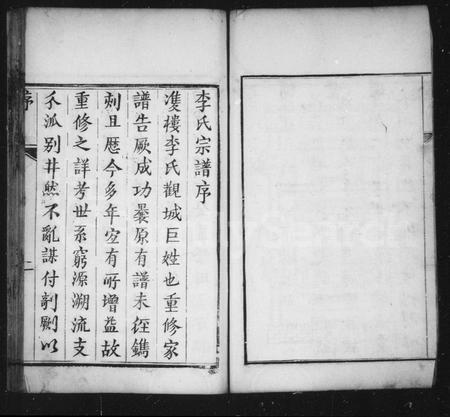 李氏宗譜序
雙樓李氏觀城巨姓也重修家
譜告厥成功曩原有譜未經鐫
刻且歷今多年宜有所增益故
重修之詳考世系窮源溯流支
分派別井然不亂謀付剞劂以
序
一